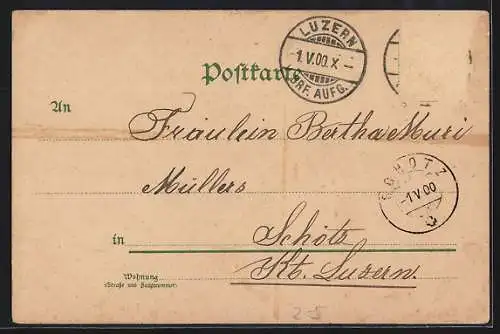 LUZERN
1.V.00.X
BRF. AUFG.
Postkarte
An
Fräulein Bertha Muri
Müllers
SCHÖTZ
-1.V.00
in Schötz
Kt. Luzern.
Wohnung
(Straße und Hausnummer)
2-5